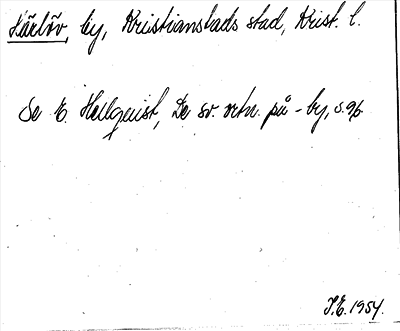 Härlöv, by, Kristianstads stad, Krist. l.
Se E. Hellquist, De sv. ortn. på -by, s. 96
J.E. 1954.